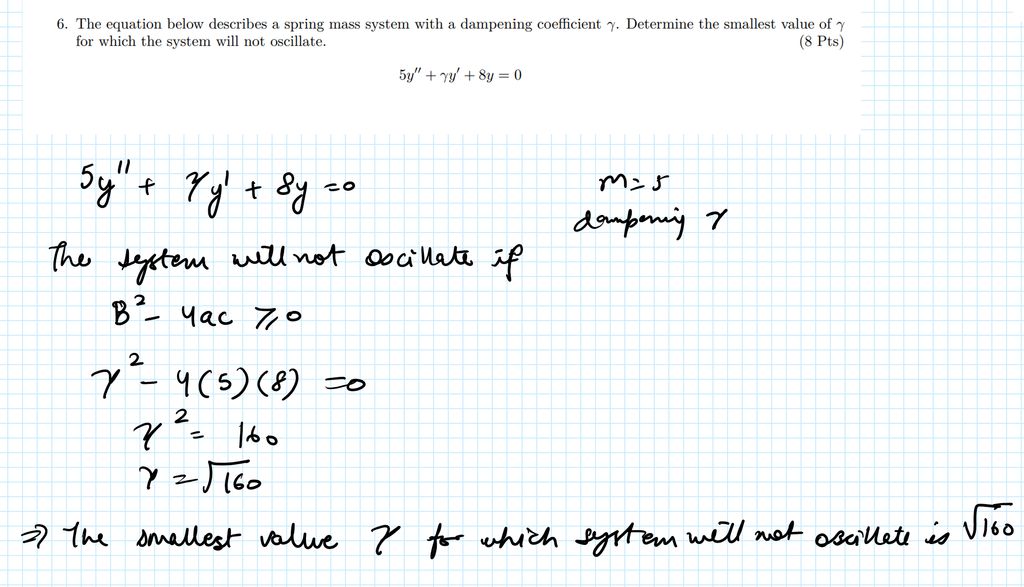 6. The equation below describes a spring mass system with a dampening coefficient γ. Determine the smallest value of γ
for which the system will not oscillate. (8 Pts)
5y″ + γy′ + 8y = 0
5y″ + γy′ + 8y =0
m=5
dampening γ
The system will not oscillate if
B² - 4ac ⩾0
γ² - 4(5)(8) =0
γ² = 160
γ = √160
⇒ The smallest value γ for which system will not oscillate is √160